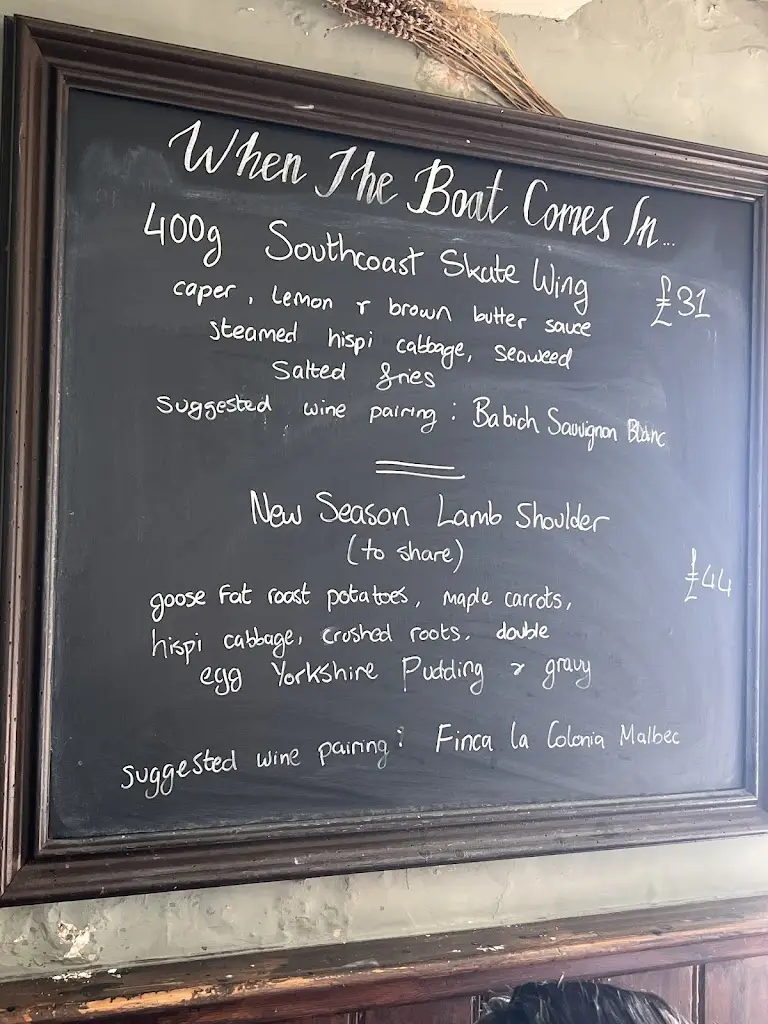 When The Boat Comes In...
400g Southcoast Skate Wing
£31
caper, lemon & brown butter sauce
steamed hispi cabbage, seaweed
salted fries
suggested wine pairing: Babich Sauvignon Blanc
New Season Lamb Shoulder
(to share)
£44
goose fat roast potatoes, maple carrots,
hispi cabbage, crushed roots, double
egg Yorkshire Pudding & gravy
suggested wine pairing: Finca la Colonia Malbec